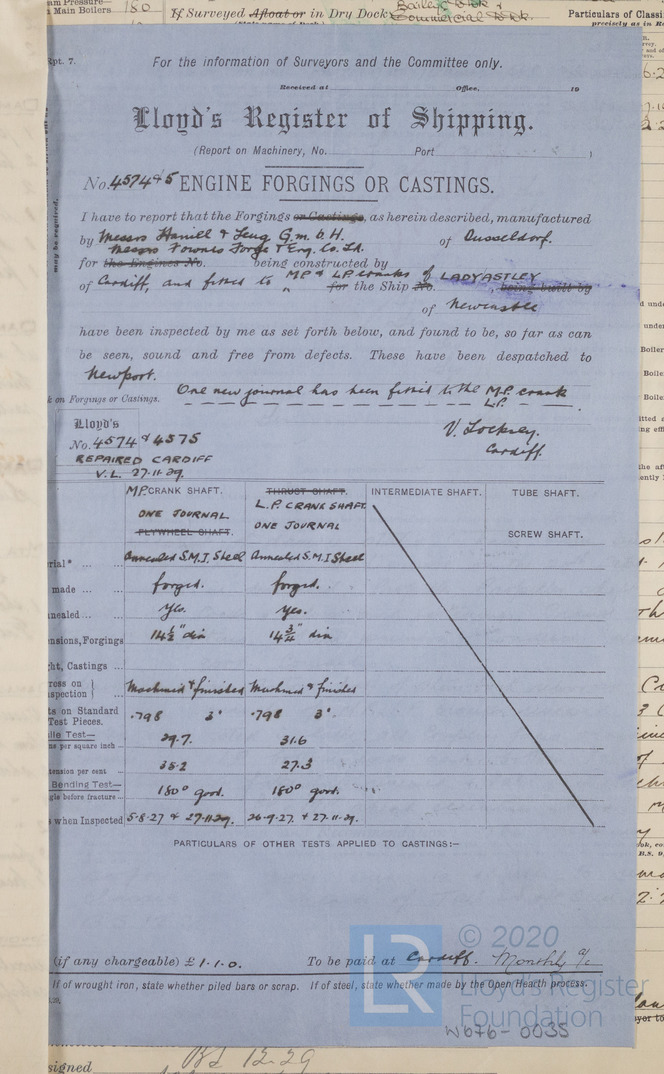 Main Boilers 180 If Surveyed Afloat or in Dry Dock Commercial Dock. Particulars of Classi
precisely as in Re
Rpt. 7. For the information of Surveyors and the Committee only.
Received at Office, 19
Lloyd's Register of Shipping.
(Report on Machinery, No. Port )
No. 4574 & 5 ENGINE FORGINGS OR CASTINGS.
may be required.
I have to report that the Forgings or Castings, as herein described, manufactured
by Messrs Haniell & Lueg G.m.b.H. of Dusseldorf.
Messrs Townes Forge & Eng. Co. Ld.
for the Engines No. being constructed by
of Cardiff, and fitted to MP & LP cranks of LADY ASTLEY
for the Ship No. , being built by
of Newcastle
have been inspected by me as set forth below, and found to be, so far as can
be seen, sound and free from defects. These have been despatched to
Newport.
k on Forgings or Castings. One new journal has been fitted to the M.P. crank
L.P.
Lloyd's
No. 4574 & 4575
REPAIRED CARDIFF
V.L. 27.11.29.
V. Locksey.
Cardiff.
MP CRANK SHAFT. THRUST SHAFT. INTERMEDIATE SHAFT. TUBE SHAFT.
L.P. CRANK SHAFT
ONE JOURNAL ONE JOURNAL
FLYWHEEL SHAFT. SCREW SHAFT.
rial* ... ... Annealed S.M.I. Steel Annealed S.M.I Steel
made ... forged. forged.
nealed ... ... Yes. Yes.
nsions, Forgings 14½" dia 14¾" dia
ht, Castings ...
ress on
spection Machined & finished Machined & finished
ts on Standard
Test Pieces. .798 3" .798 3"
ile Test—
ns per square inch 29.7. 31.6
tension per cent 35.2 27.3
Bending Test—
gle before fracture 180° good. 180° good.
when Inspected 5-8-27 & 27-11-29. 26-9-27. & 27-11-29.
PARTICULARS OF OTHER TESTS APPLIED TO CASTINGS:—
(if any chargeable) £ 1.1.0. To be paid at Cardiff. Monthly a/c
If of wrought iron, state whether piled bars or scrap. If of steel, state whether made by the Open Hearth process.
LR © 2020
Lloyd's Register
Foundation
W676-0035
signed